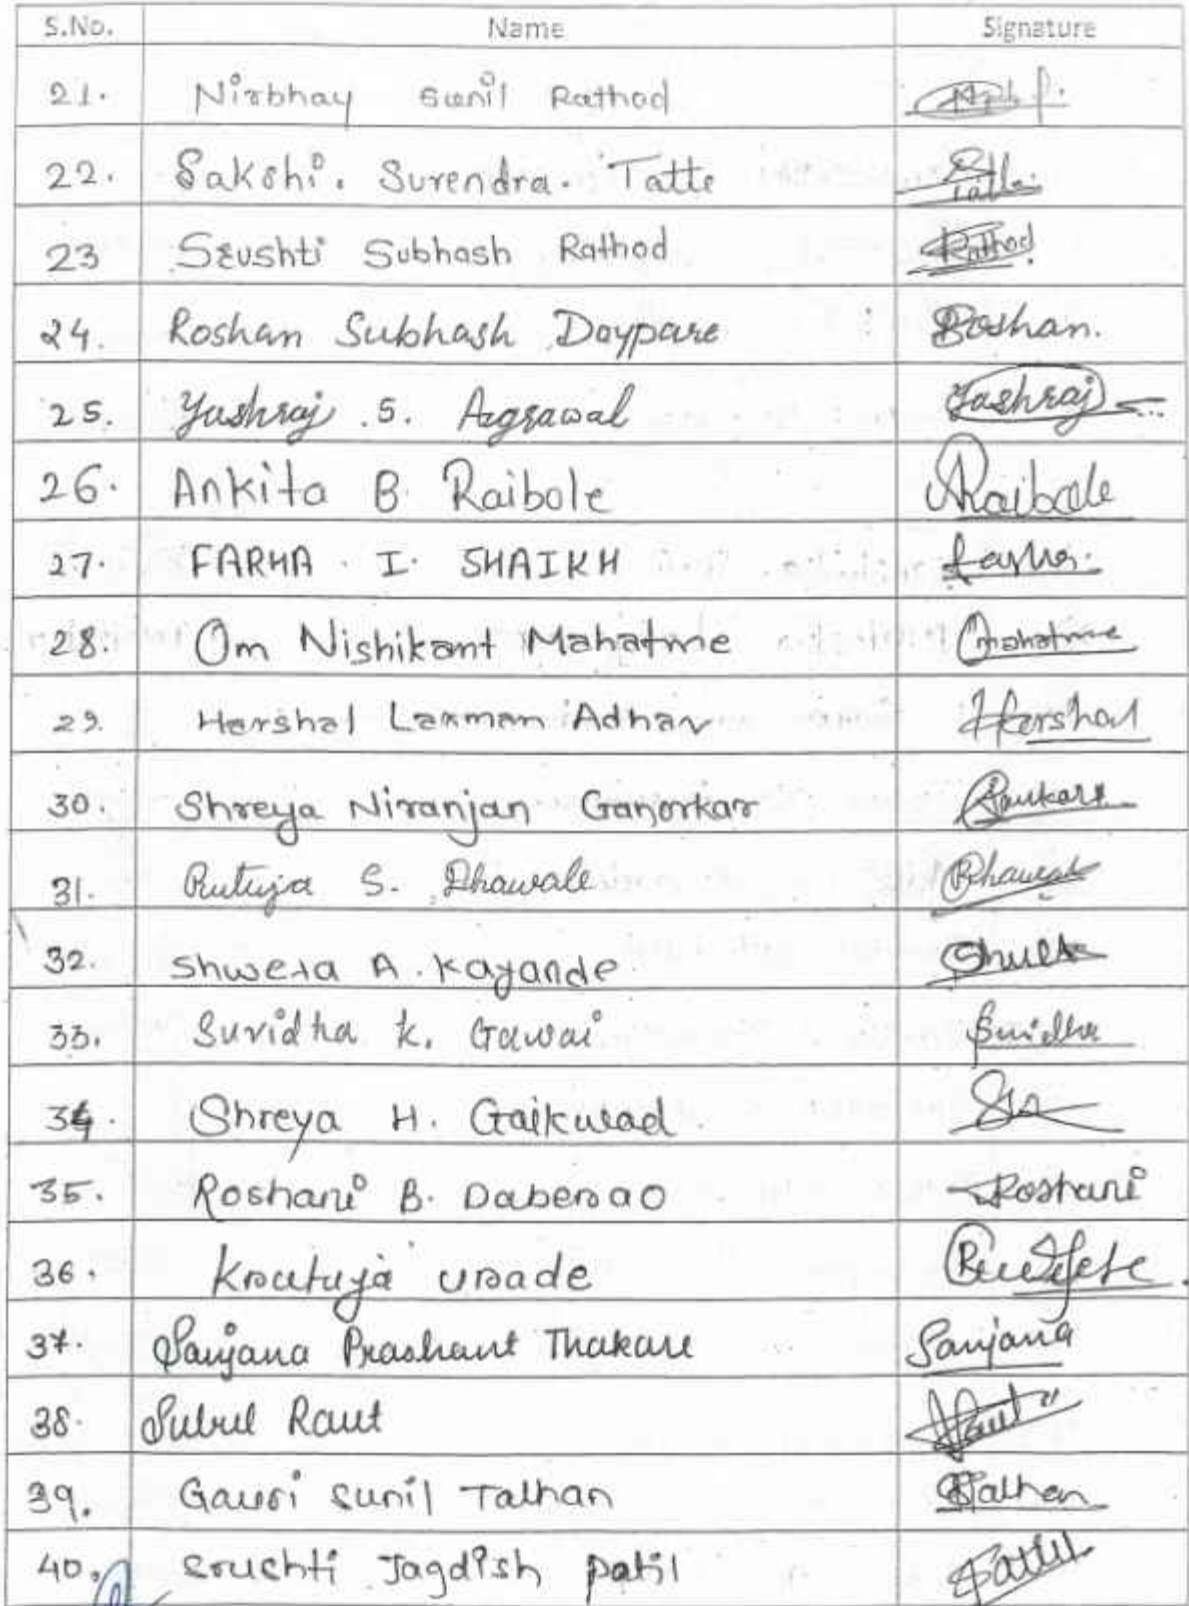 S.No. Name Signature
21. Nirbhay Sunil Rathod
22. Sakshi. Surendra. Tatte Tatte
23 Srushti Subhash Rathod Rathod
24. Roshan Subhash Daypare Roshan.
25. Yashraj .S. Agrawal Yashraj
26. Ankita B. Raibole Raibole
27. FARHA . I. SHAIKH Farha.
28. Om Nishikant Mahatme Omahatme
29. Harshal Laxman Adhav Harshal
30. Shreya Niranjan Ganorkar
31. Rutuja S. Dhawale
32. Shweta A. Kayande
33. Suvidha K. Gawai Suvidha
34. Shreya H. Gaikwad
35. Roshani B. Daberao Roshani
36. Krutuja Urade
37. Sanjana Prashant Thakare Sanjana
38. Raut Raut
39. Gauri Sunil Talhan Talhan
40. Sruchti Jagdish Patil Patil